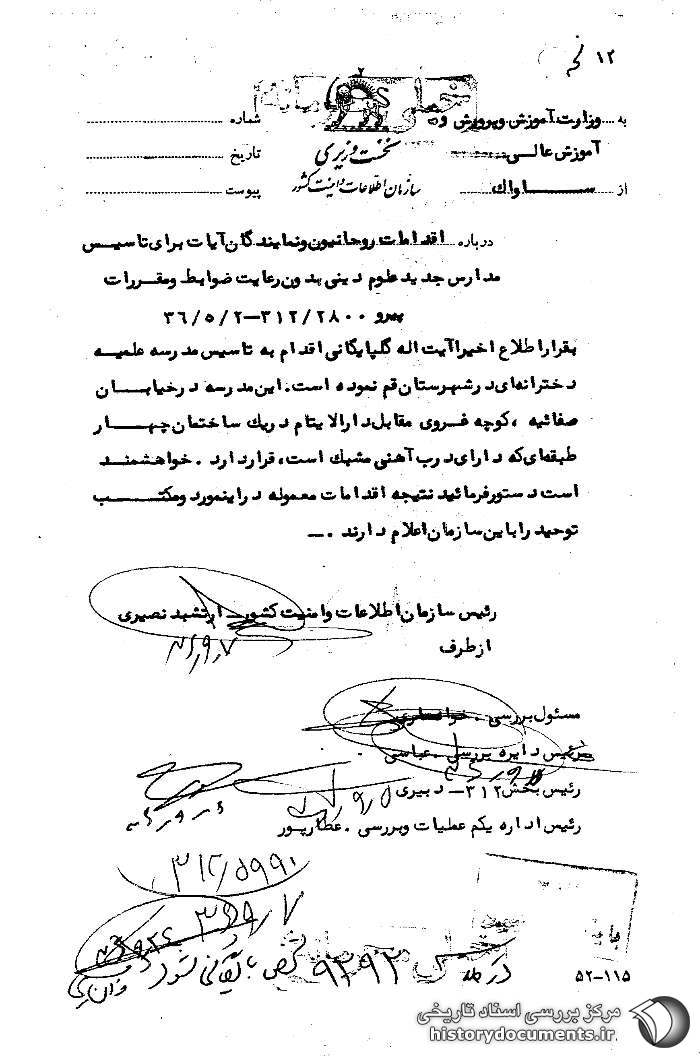 ۱۲
خیلی محرمانه
به وزارت آموزش و پرورش و شماره
آموزش عالی نخست وزیری تاریخ
از ساواک سازمان اطلاعات و امنیت کشور پیوست
درباره اقدامات روحانیون و نمایندگان آیات برای تاسیس
مدارس جدید علوم دینی بدون رعایت ضوابط و مقررات
پیرو ۳۱۲/۲۸۰۰-۳۶/۵/۲
بقرار اطلاع اخیرا آیت اله گلپایگانی اقدام به تاسیس مدرسه علمیه
دخترانه‌ای در شهرستان قم نموده است. این مدرسه در خیابان
صفائیه ، کوچه غروی مقابل دارالایتام در یک ساختمان چهار
طبقه‌ای که دارای درب آهنی مشبک است، قرار دارد . خواهشمند
است دستور فرمائید نتیجه اقدامات معموله در اینمورد و مکتب
توحید را باین سازمان اعلام دارند .ــ
رئیس سازمان اطلاعات و امنیت کشور ــ ارتشبد نصیری
از طرف
۳۶/۹/۷
مسئول بررسی . خوانساری
رئیس دایره بررسی . عباسی
رئیس بخش ۳۱۲ــ دبیری
رئیس اداره یکم عملیات و بررسی . عطارپور
۳۱۲/۵۹۹۰
۳۶/۹/۷
خیلی محرمانه
در ۹۲۹۲ بایگانی شود
۵۲-۱۱۵
مرکز بررسی اسناد تاریخی
historydocuments.ir